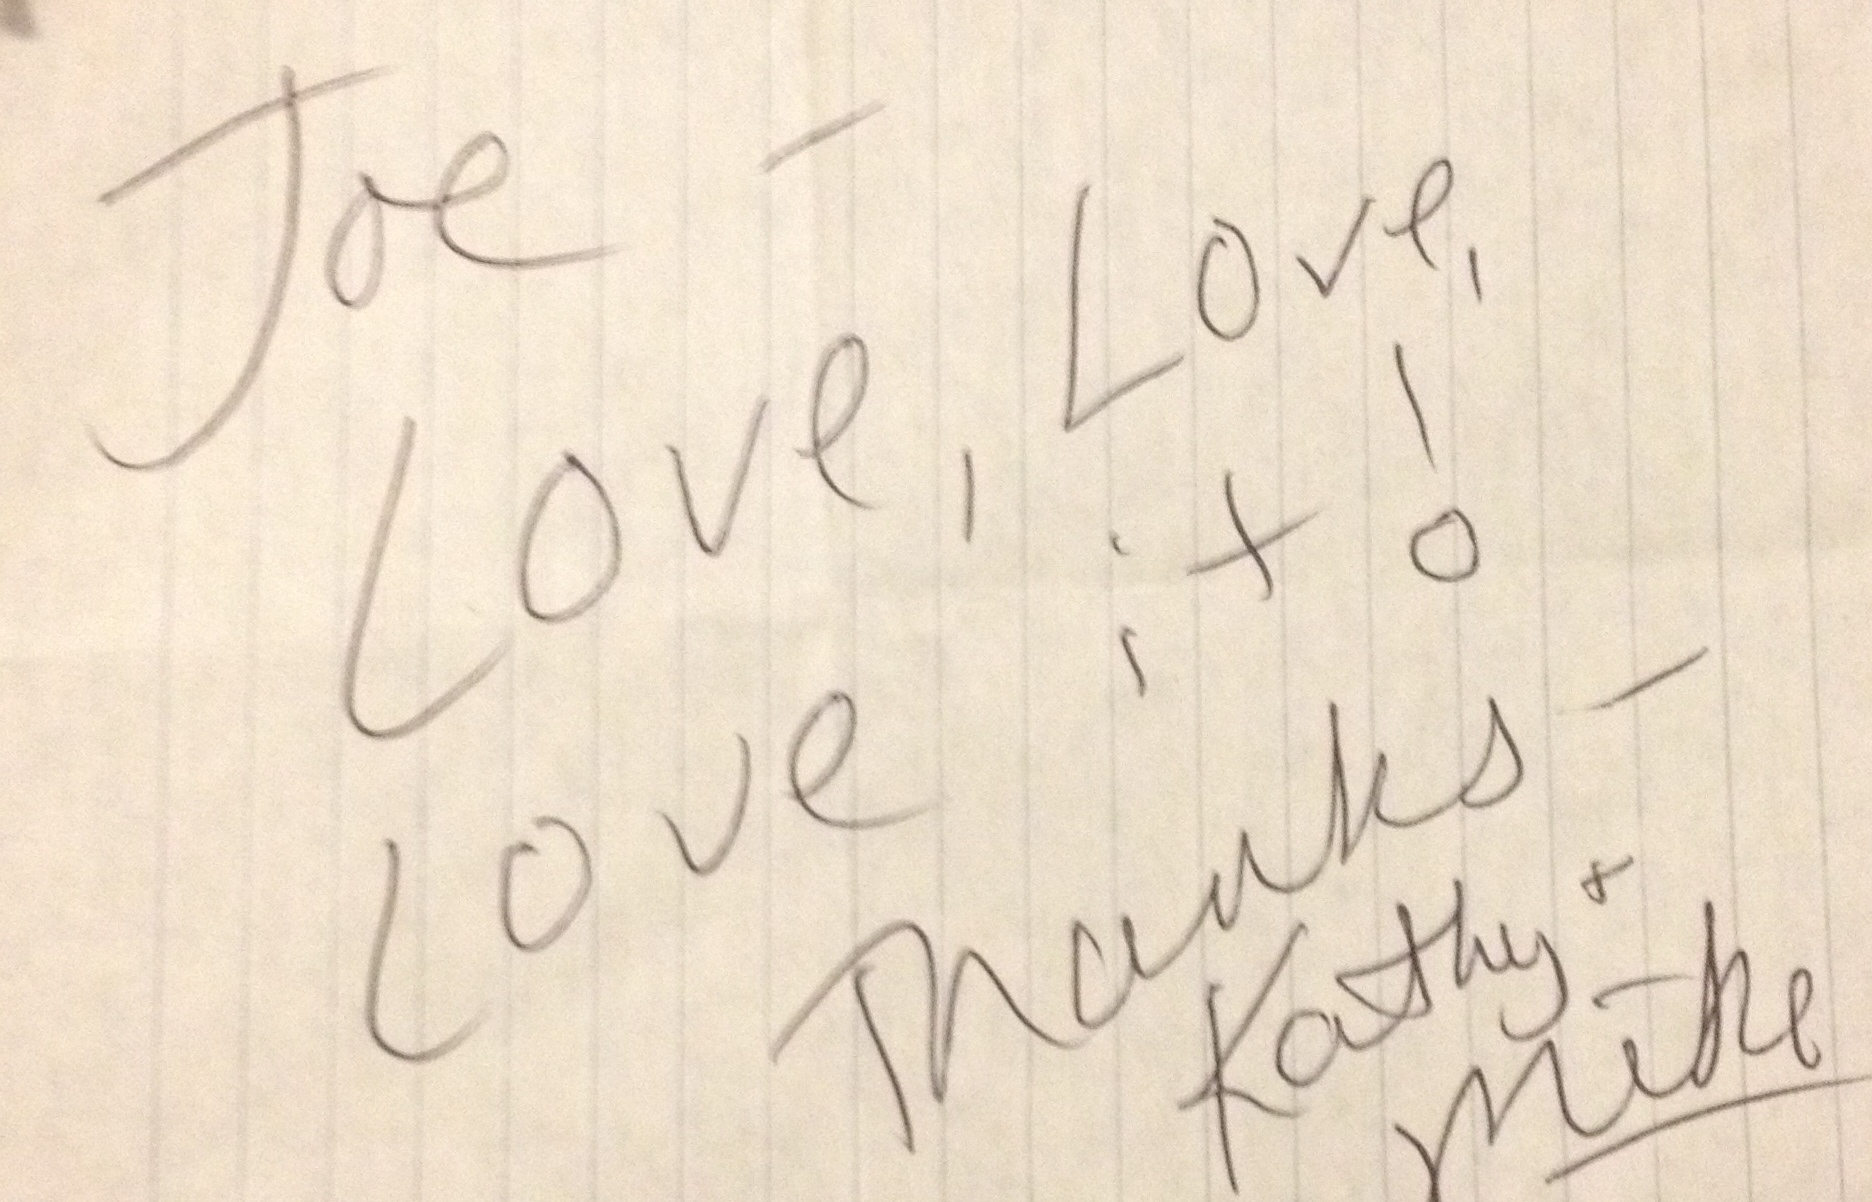 Joe -
Love, Love,
Love it!
Thanks -
Kathy +
Mike